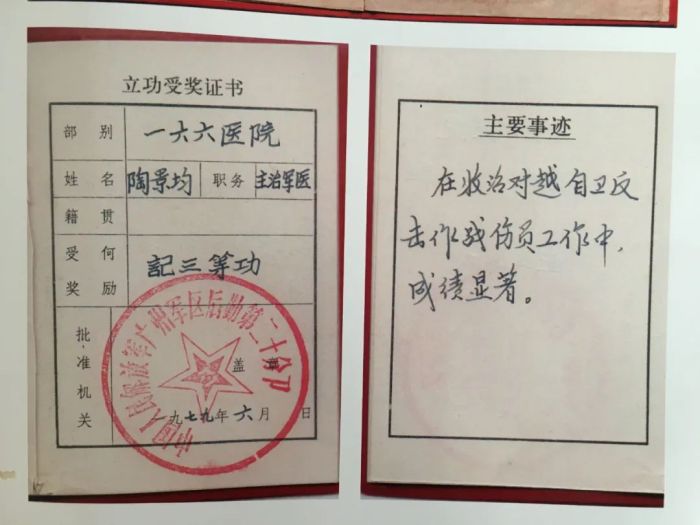 立功受奖证书
部别 一六六医院
姓名 陶景均 职务 主治军医
籍贯
受何奖励 記三等功
批准机关
中国人民解放军广州军区后勤第二十分部
盖章
一九七九年六月 日
主要事迹
在收治对越自卫反
击作战伤员工作中,
成绩显著。